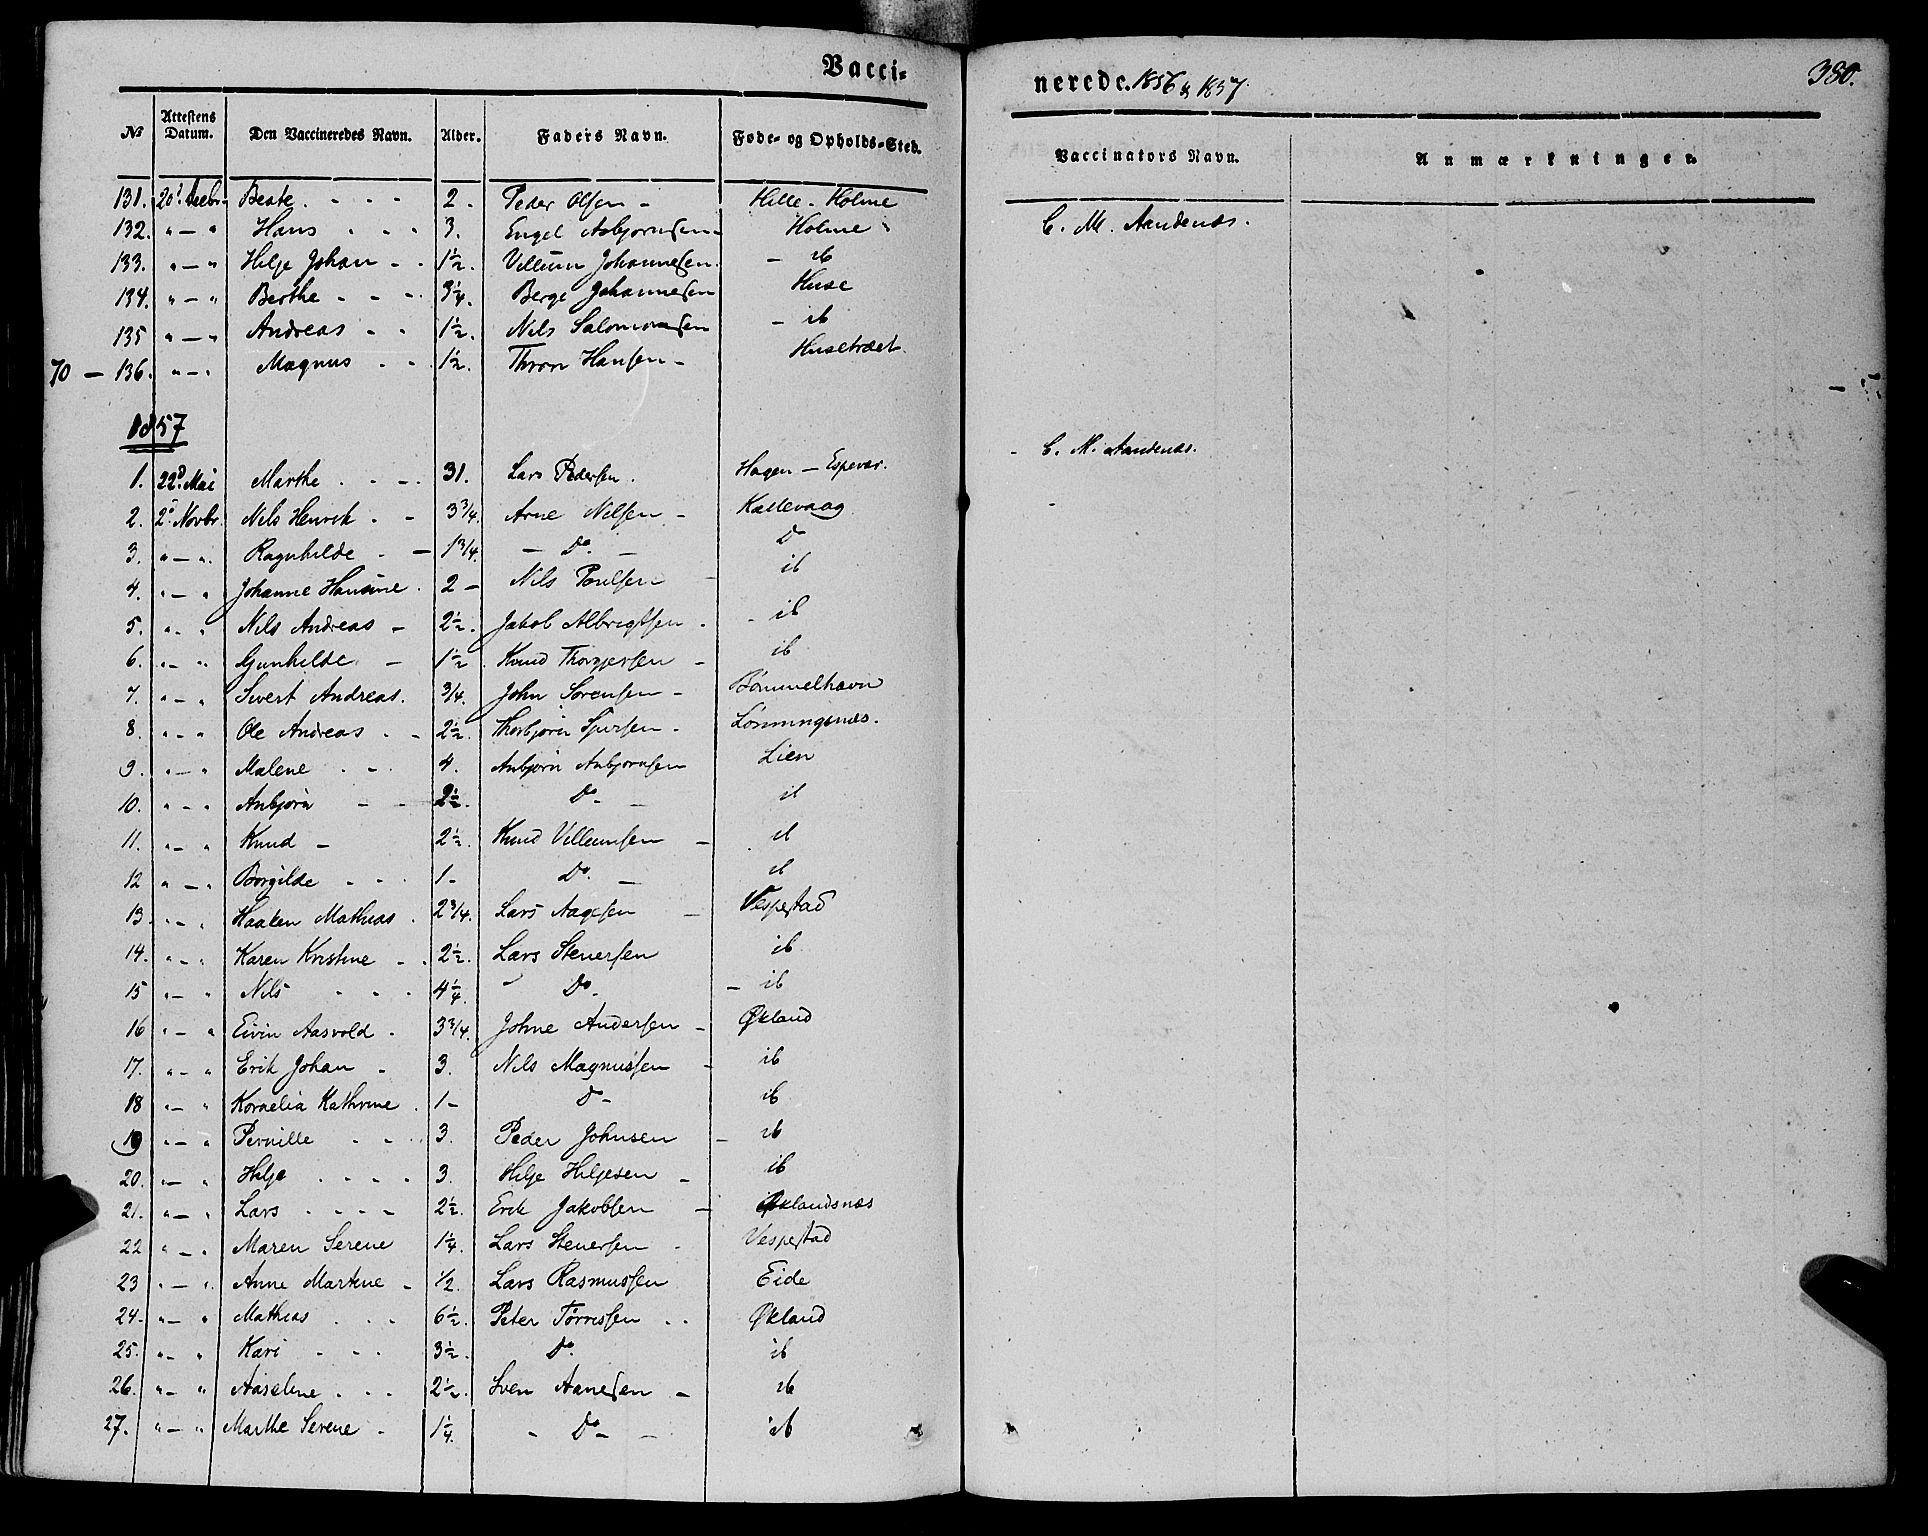 Vacci-
nerede. 1856 & 1857.
380.
№ Attestens Datum. Den Vaccineredes Navn. Alder. Faders Navn. Føde- og Opholds-Sted. Vaccinators Navn. Anmærkninger.
131. 20' Decbr. Beate 2. Peder Olsen - Hille - Holme C. M. Aandenæs.
132. " - " Hans 3. Engel Asbjørnsen - Holme
133. " - " Helje Johan 1½. Villum Johannesen. - ib
134. " - " Berthe 3¼. Berge Johannesen Huse
135 " - " Andreas 1½. Nils Salomonsen - ib
70 - 136. " - " Magnus 1½. Thron Hansen - Husetræet.
1857
1. 22d Mai Marthe 31. Lars Pedersen. Hagen - Espevær. C. M. Aandenæs.
2. 2' Novbr. Nils Henrik - 3¾. Arne Nilsen - Kallevaag
3. " - " Ragnhilde - 1¾. - Do. - Do
4. " - " Johanne Hansine. 2 - Nils Poulsen ib
5. " - " Nils Andreas - 2½. Jakob Albrigtsen. - ib
6. " - " Gunhilde - 1½ Knud Thorgersen - ib
7. " - " Sivert Andreas. ¾. John Sørensen - Bømmelhavn
8. " - " Ole Andreas - 2½. Thorbjørn - Lønningsnæs.
9. " - " Malene 4. Anbjørn Anbjørnsen Lien
10. " - " Anbjørn - 2½. Do - ib
11. " - " Knud - 2½. Knud Villumsen - ib
12 " - " Borgilde 1 - Do. - ib
13. " - " Haaken Mathias. 2¾. Lars Aagesen - Vespestad
14. " - " Karen Kristine 2½. Lars Stenersen ib
15 " - " Nils 4¼. Do. - ib
16 " - " Eivin Aasvold. 3¾. Johne Andersen - Økland
17. " - " Erik Johan - 3. Nils Magnussen - ib
18 " - " Kornelia Kathrine. 1 - Do - ib
19 " - " Pernille 3. Peder Johnsen - ib
20. " - " Helje 3. Helje Heljesen - ib
21. " - " Lars 2½. Erik Jakobsen - Øklandsnæs
22 " - " Maren Serene 1¼. Lars Stenersen - Vespestad
23 " - " Anne Martine - ½. Lars Rasmussen Eide
24. " - " Mathias 6½. Peter Tørresen Økland
25. " - " Kari 3½. Do. ib
26. " - " Aaselene 2½. Sven Aanesen - ib
27. " - " Marthe Serene - 1¼. - Do - ib